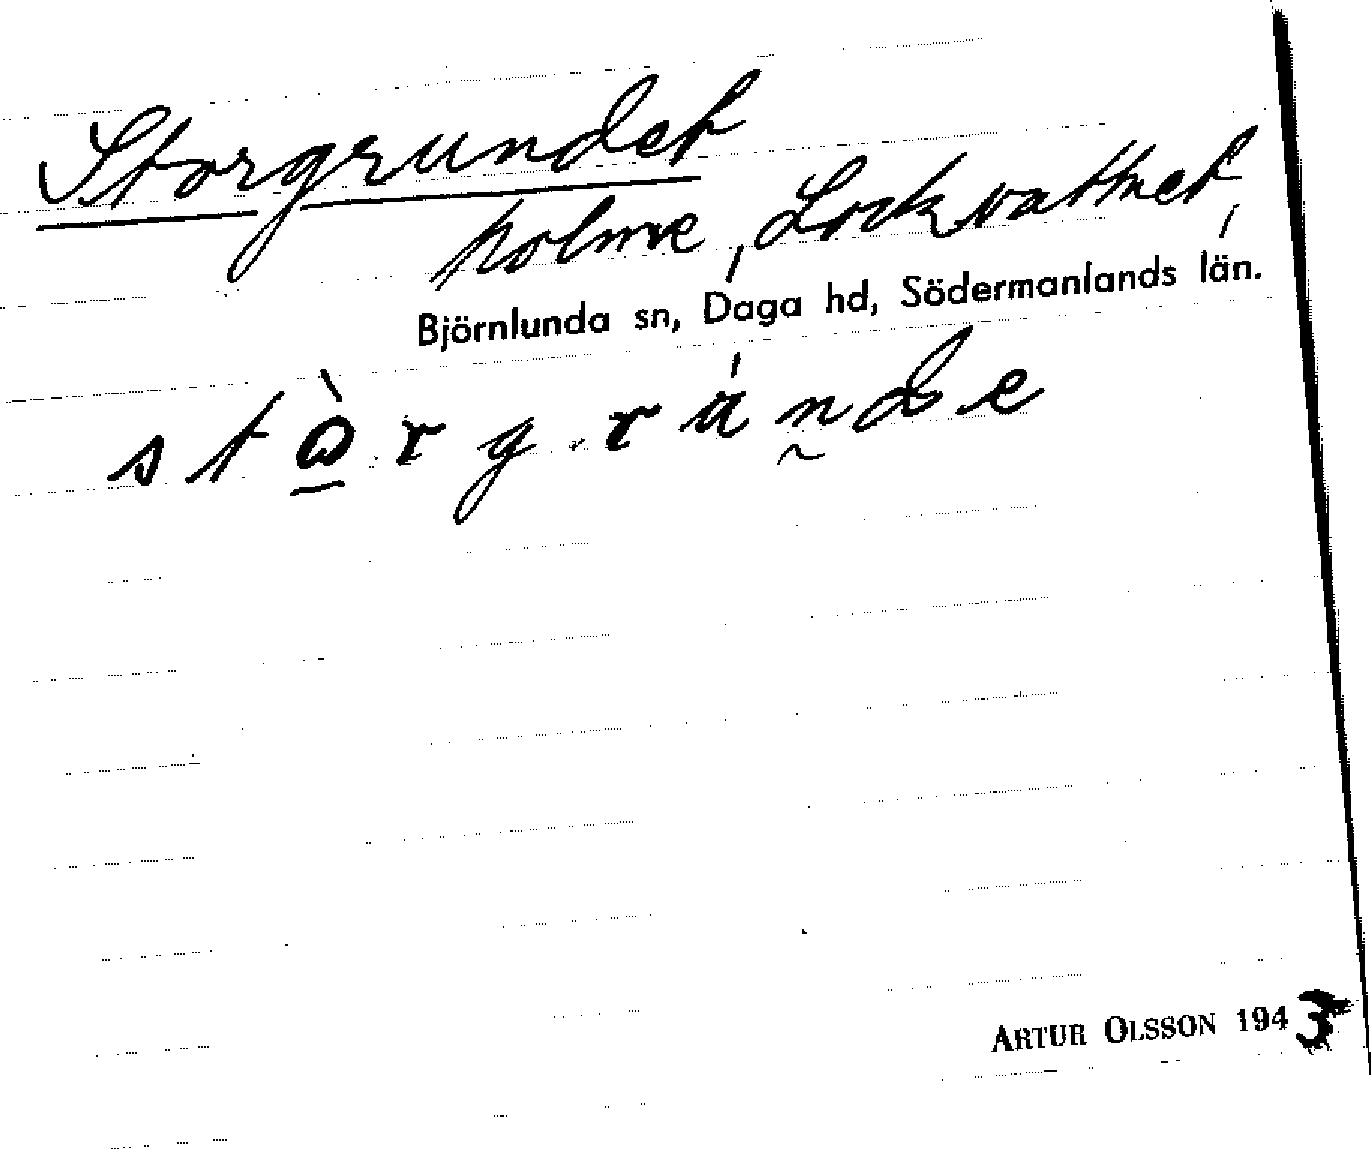 Storgrundet
holme, Lockvattnet,
Björnlunda sn, Daga hd, Södermanlands län.
stò̱rgrúnde
ARTUR OLSSON 1943